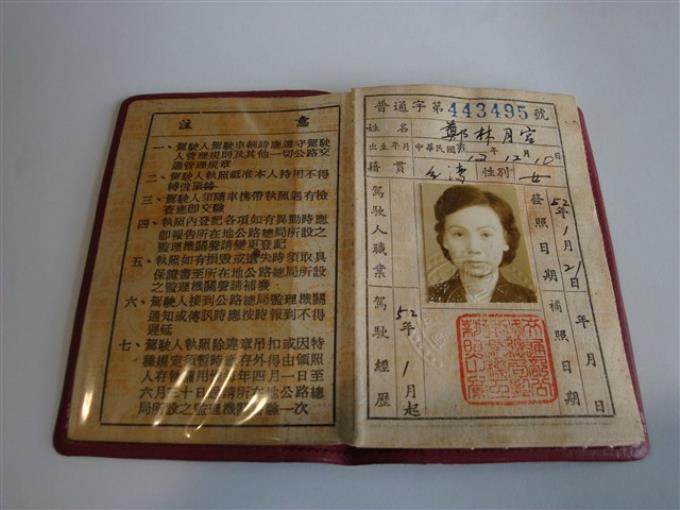 注意
一、駕駛人駕駛車輛時應遵守駕駛
人管理規則及其他一切公路交
通管理規章
二、駕駛人執照祗准本人持用不得
轉借頂替
三、駕駛人須隨車携帶執照遇有檢
查應即交驗
四、執照內登記各項如有異動時應
即報告所在地公路總局所設之
監理機關聲請變更登記
五、執照如有損毀或遺失時須取具
保證書至所在地公路總局所設
之監理機關聲請補發
六、駕駛人接到公路總局監理機關
通知或傳訊時應按時報到不得
遲延
七、駕駛人執照除違章吊扣或因特
種規定須暫時繳存外得由領照
人存執備用 年四月一日至
六月三十日 請所在地公路總
局所設之監理機關 驗一次
普通字第443495號
姓名 鄭林月宮
出生年月中華民國 12年12月10日
籍貫 台灣 性別 女
駕駛人職業
駕駛經歷 52年1月起
發照日期 52年1月21日
補照日期 年月日